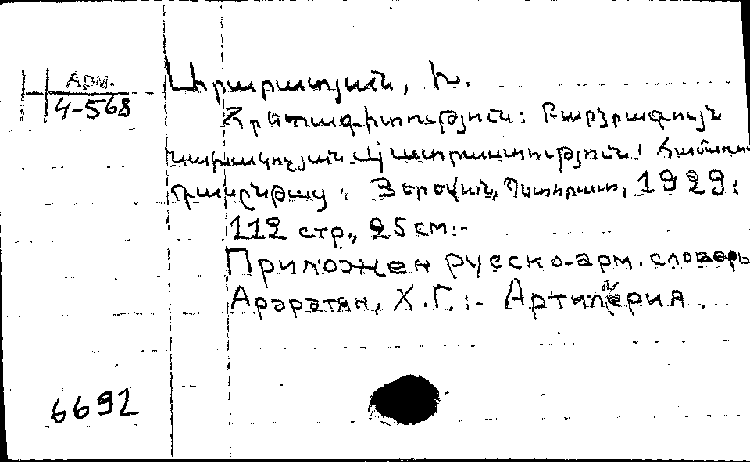 Арм.
4-568
Արարատյան, Խ.
Հրետագիտություն: Բարձրագույն
նախակոչյան պատրաստություն:
դասընթաց: Յերևան, Պետհրատ, 1929:
112 стр., 25 см:-
Приложен русско-арм. словарь
Араратян, Х.Г.:- Артилерия.
6692